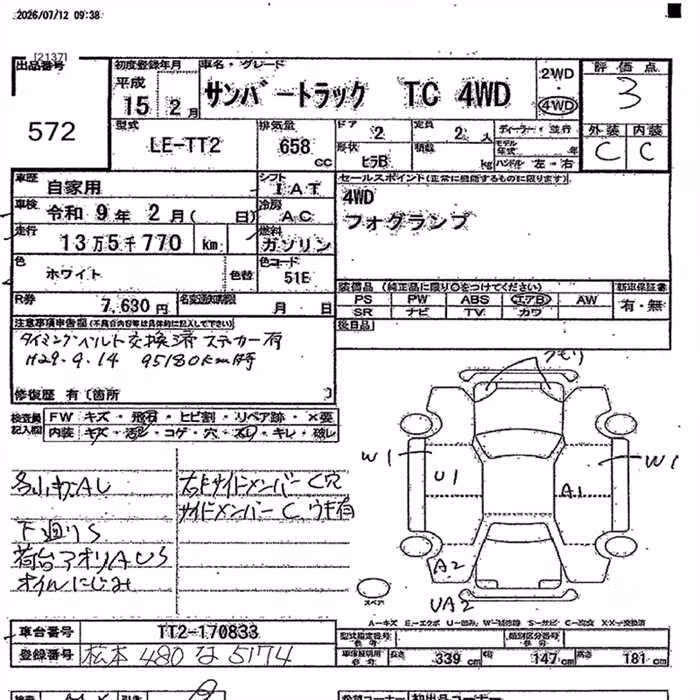 2026/07/12 09:38
[2137]
出品番号
572
初度登録年月
平成
15年 2月
車名・グレード
サンバートラック TC 4WD
2WD
4WD
評価点
3
外装 内装
C C
型式
LE-TT2
排気量
658 cc
ドア 2
定員 2 人
形状 ヒラB
積載 kg
ディーラー・並行
モデル年式 年
ハンドル 左・右
車歴
自家用
シフト
IAT
車検
令和 9年 2月( 日)
冷房
AC
走行
13万5千770 km
燃料
ガソリン
色
ホワイト
色替
色コード
51E
R券
7,630円
月 日
セールスポイント(正常に機能するものに限ります)
4WD
フォグランプ
装備品 (純正品に限り○をつけてください)
PS PW ABS エアB AW
SR ナビ TV カワ
新車保証書
有・無
後日品
注意事項申告欄(不具合内容等は具体的に記入して下さい)
タイミングベルト交換済 ステッカー有
H29.9.14 95180km時
修復歴 有〔箇所 〕
検査員記入欄
FW キズ・飛石・ヒビ割・リペア跡・×要
内装 キズ・汚レ・コゲ・穴・スレ・キレ・破レ
各小キズAU
下廻りS
荷台アオリAUS
オイルにじみ
右ドサイドメンバーC穴
サイドメンバーC ウキ有
クモリ
W1
U1
A1
W1
A2
UA2
スペア
A-キズ E-エクボ U-凹み W-補修跡 S-サビ C-腐食 XX-交換済
車台番号
TT2-170833
登録番号
松本 480 な 5174
型式指定番号
類別区分番号
長さ 339 cm
幅 147 cm
高さ 181 cm